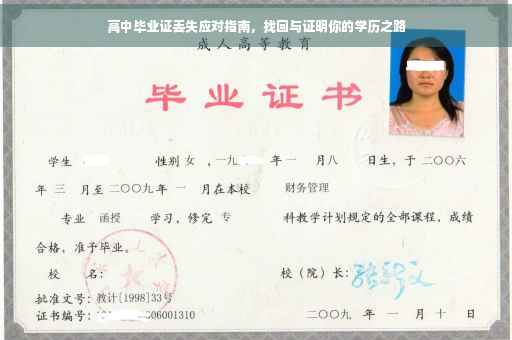 高中毕业证丢失应对指南，找回与证明你的学历之路
成人高等教育
毕业证书
学生 性别 女 ，一九 年 一 月八 日生，于 二〇〇六
年 三 月至 二〇〇九 年 一 月在本校 财务管理
专业 函授 学习，修完 专 科教学计划规定的全部课程，成绩
合格，准予毕业。
校 名： 校（院）长：
批准文号：教计[1998]33号
证书编号： 06001310 二〇〇九 年 一 月 十 日